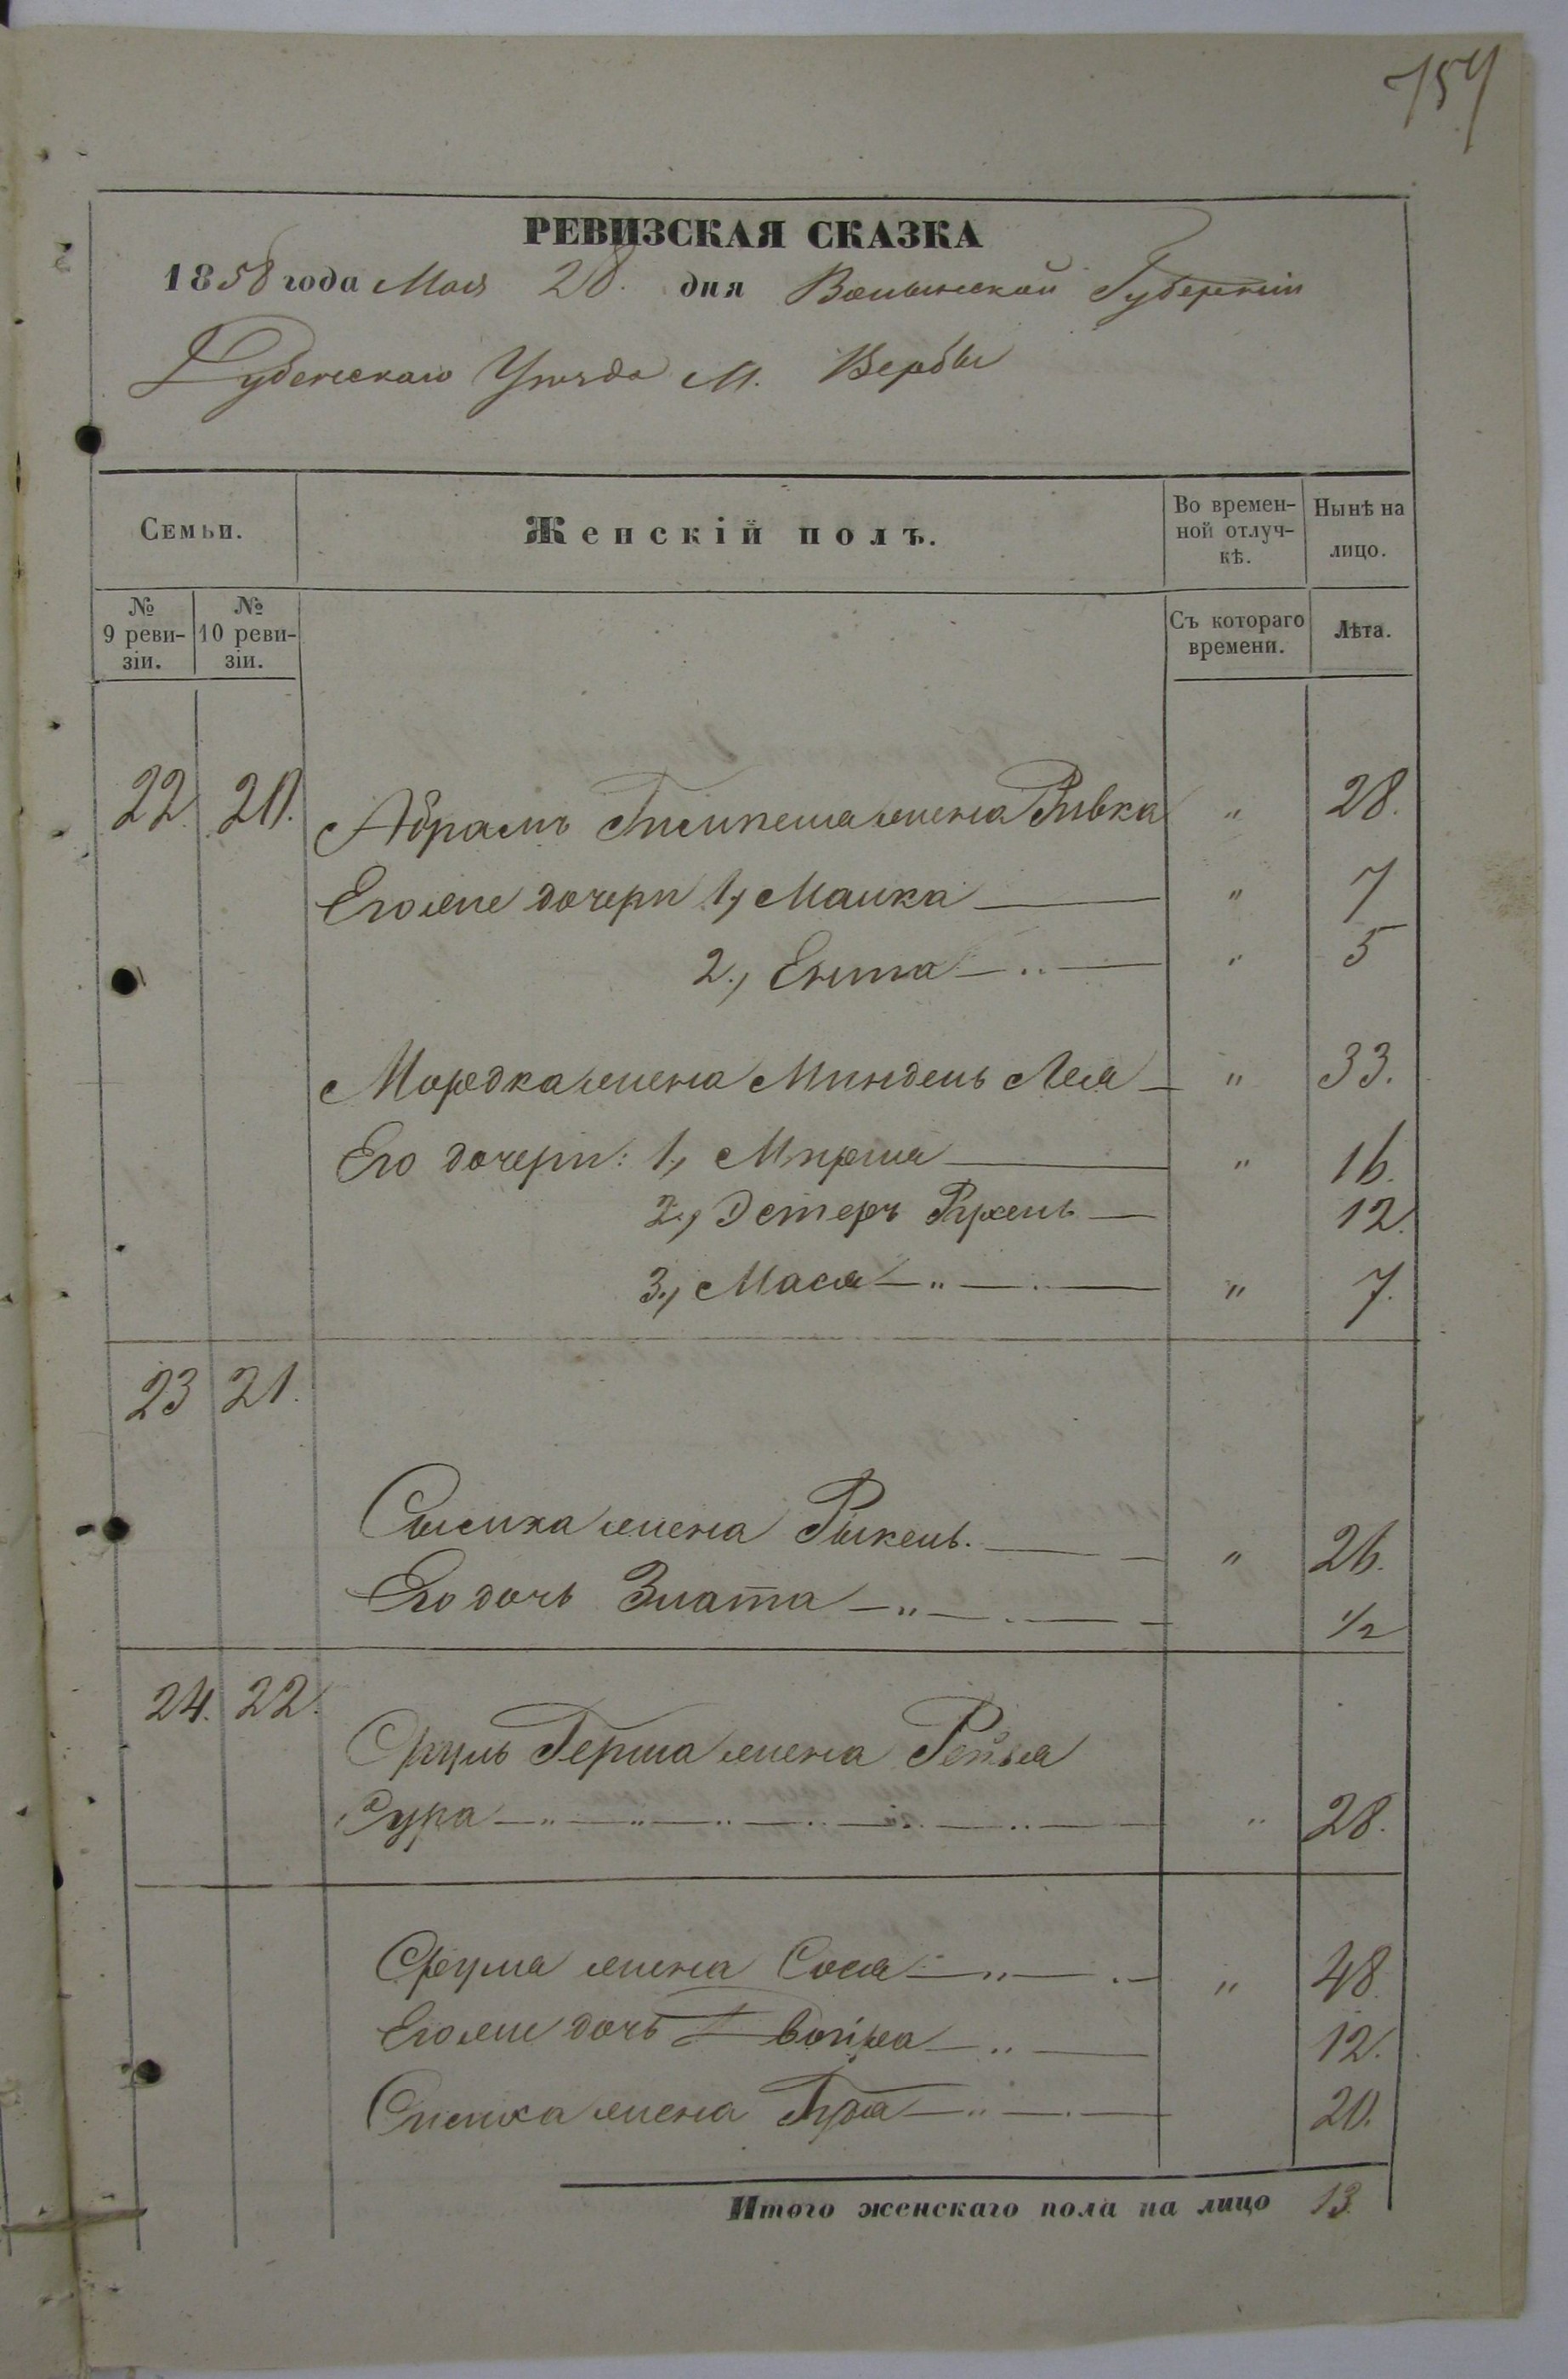 754
РЕВИЗСКАЯ СКАЗКА
1858 года Мая 28. дня Волынской Губерніи
Дубенскаго Уѣзда М. Вербы
Семьи.
Женскій полъ.
Во времен-
ной отлуч-
кѣ.
Нынѣ на
лицо.
№
9 реви-
зіи.
№
10 реви-
зіи.
Съ котораго
времени.
Лѣта.
22 20. Абрамъ жена Ривка " 28.
Его же дочери 1, Малка " 7
2., Ента " 5
Мордка жена Миндель Лея " 33.
Его дочери: 1, Мирля " 16.
2., Эстеръ Рухель 12.
3., Мася " 7.
23 21.
жена Рыкель. " 26.
Его дочь Злата 1/2
24. 22.
Сруль Герша жена Рейзя
Сура " 28.
Сруля жена Сося " 48.
Его же дочь Двойра 12.
Симха жена 20.
Итого женскаго пола на лицо 13.